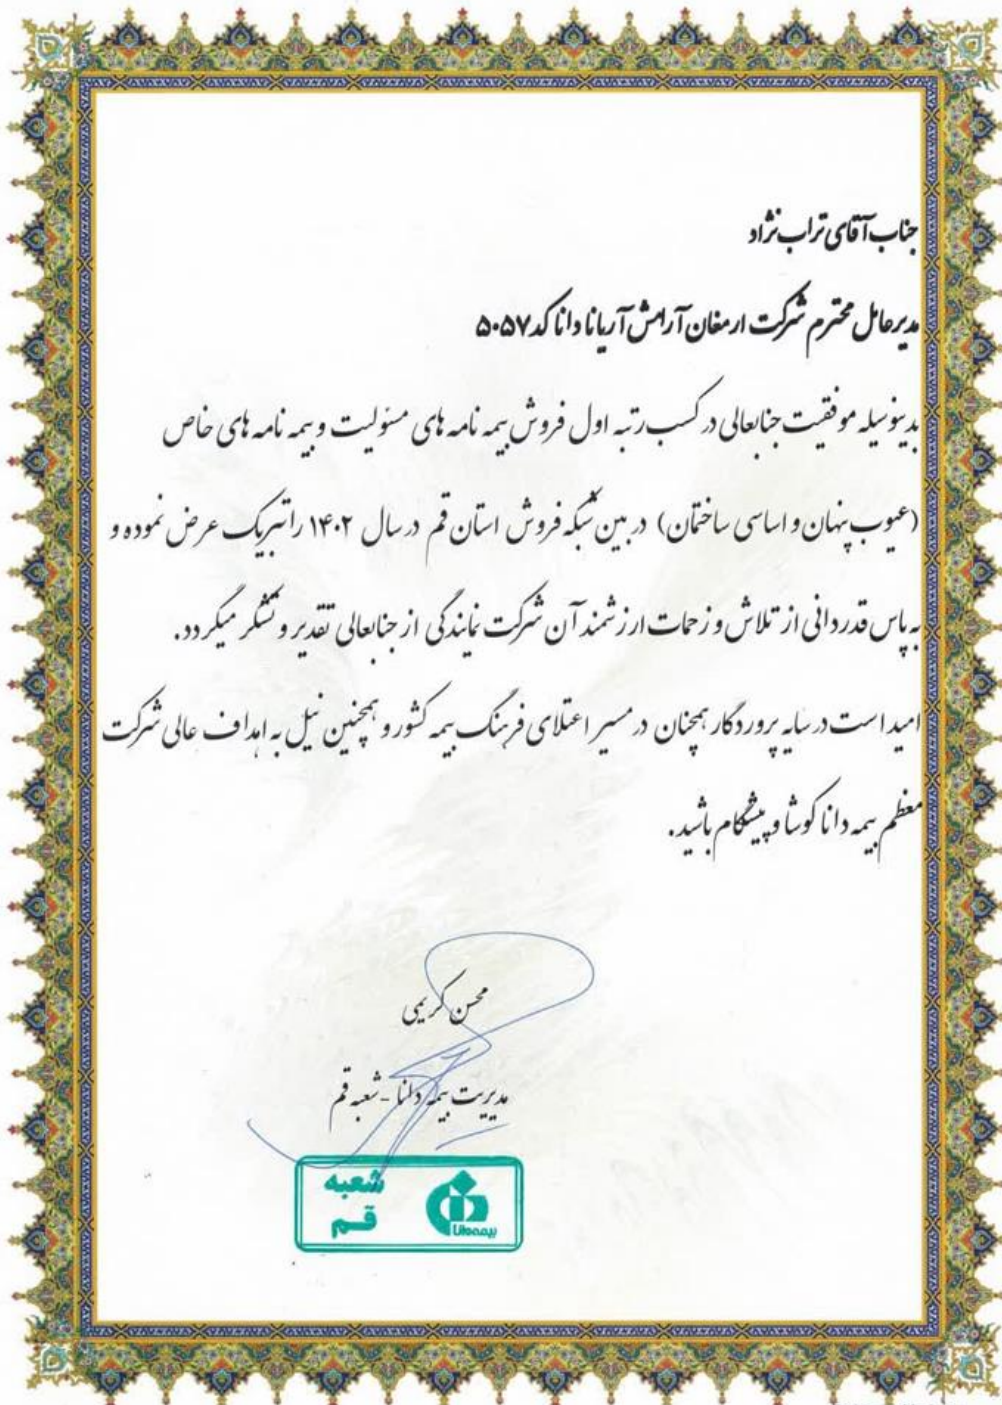 جناب آقای تراب نژاد
مدیرعامل محترم شرکت ارمغان آرامش آریانا دانا کد ۵۰۵۷
بدینوسیله موفقیت جنابعالی در کسب رتبه اول فروش بیمه نامه های مسئولیت و بیمه نامه های خاص
(عیوب پنهان و اساسی ساختمان) در بین شبکه فروش استان قم در سال ۱۴۰۲ را تبریک عرض نموده و
به پاس قدردانی از تلاش و زحمات ارزشمند آن شرکت نمایندگی از جنابعالی تقدیر و تشکر میگردد.
امید است در سایه پروردگار همچنان در مسیر اعتلای فرهنگ بیمه کشور و همچنین نیل به اهداف عالی شرکت
معظم بیمه دانا کوشا و پیشگام باشید.
محسن کریمی
مدیریت بیمه دانا - شعبه قم
شعبه
قم
بیمه دانا